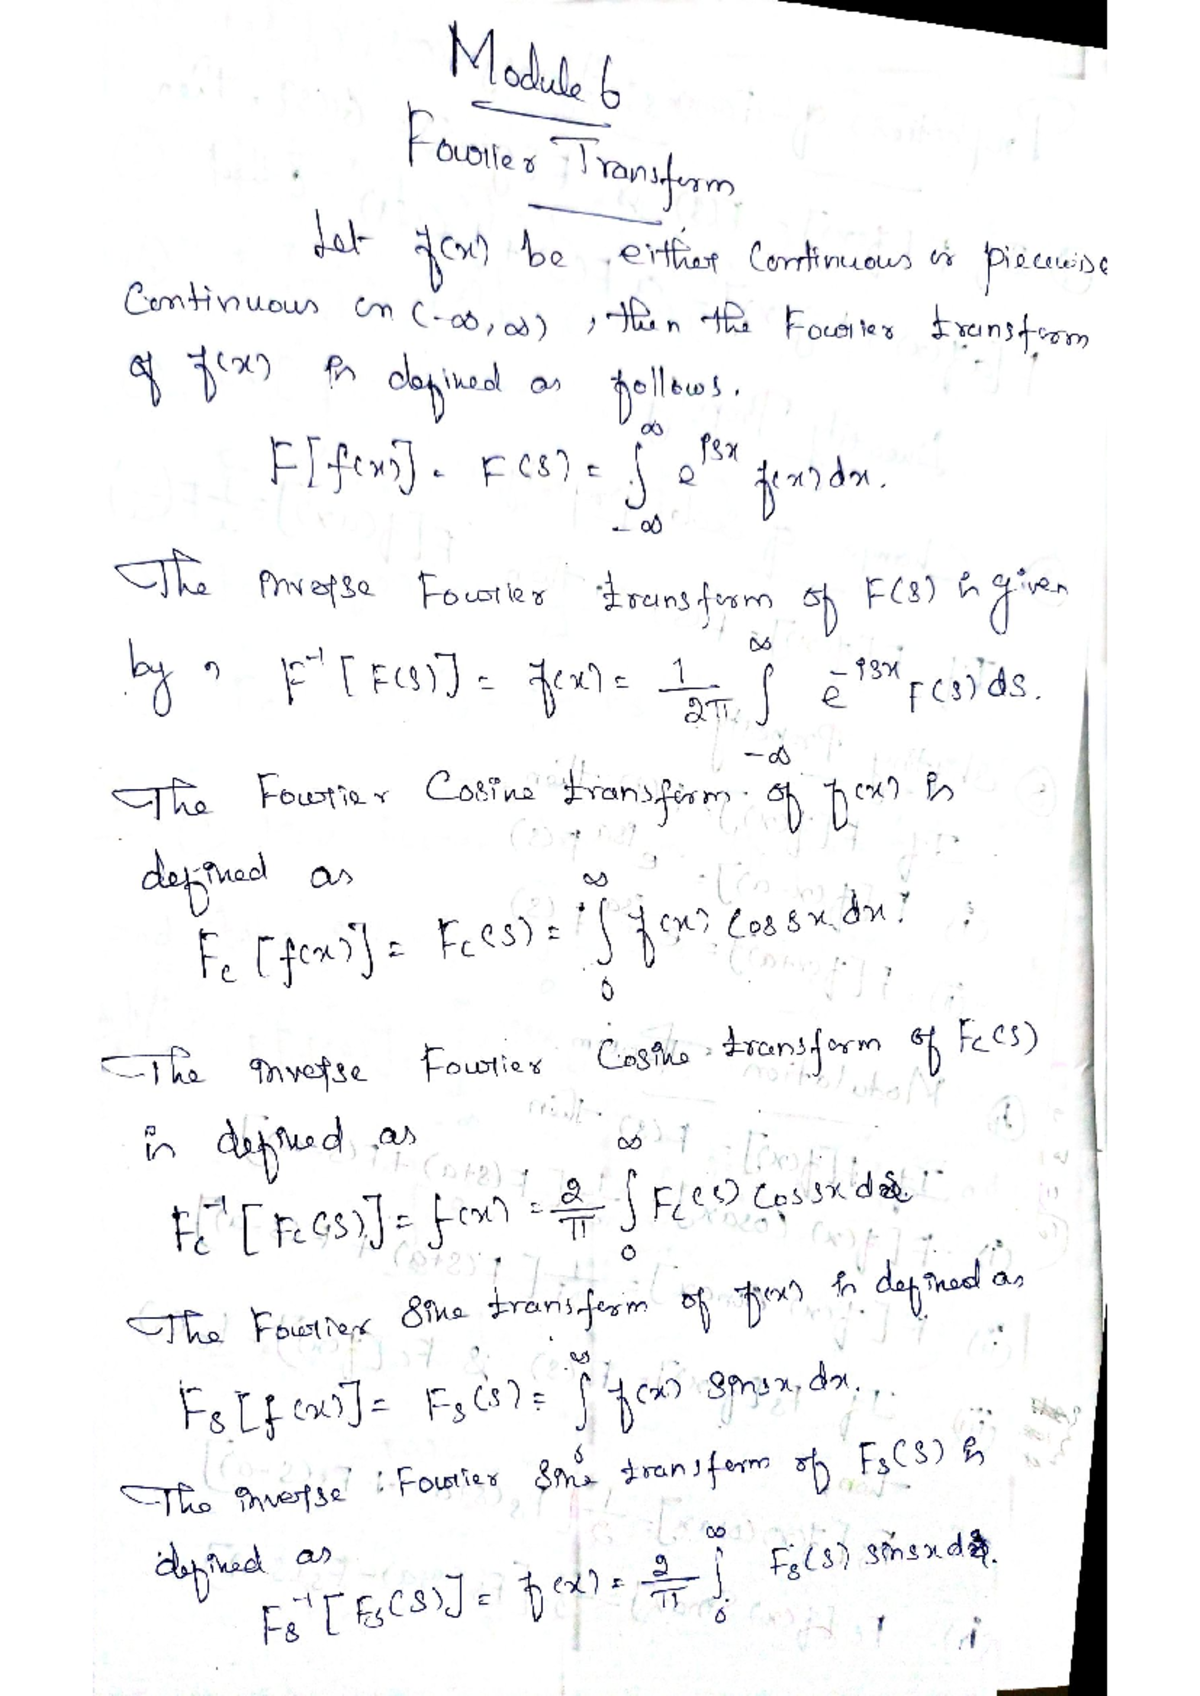 Module 6
Fourier Transform
Let f(x) be either continuous or piecewise
continuous on (-∞, ∞), then the Fourier transform
of f(x) is defined as follows.
F[f(x)] = F(s) = ∫_{-∞}^{∞} e^{isx} f(x) dx.
The inverse Fourier transform of F(s) is given
by, F^{-1}[F(s)] = f(x) = 1/2π ∫_{-∞}^{∞} e^{-isx} F(s) ds.
The Fourier Cosine transform of f(x) is
defined as
F_c[f(x)] = F_c(s) = ∫_{0}^{∞} f(x) cos sx dx.
The inverse Fourier Cosine transform of F_c(s)
is defined as
F_c^{-1}[F_c(s)] = f(x) = 2/π ∫_{0}^{∞} F_c(s) cos sx ds.
The Fourier Sine transform of f(x) is defined as
F_s[f(x)] = F_s(s) = ∫_{0}^{∞} f(x) sin sx dx.
The inverse Fourier Sine transform of F_s(s) is
defined as
F_s^{-1}[F_s(s)] = f(x) = 2/π ∫_{0}^{∞} F_s(s) sin sx ds.